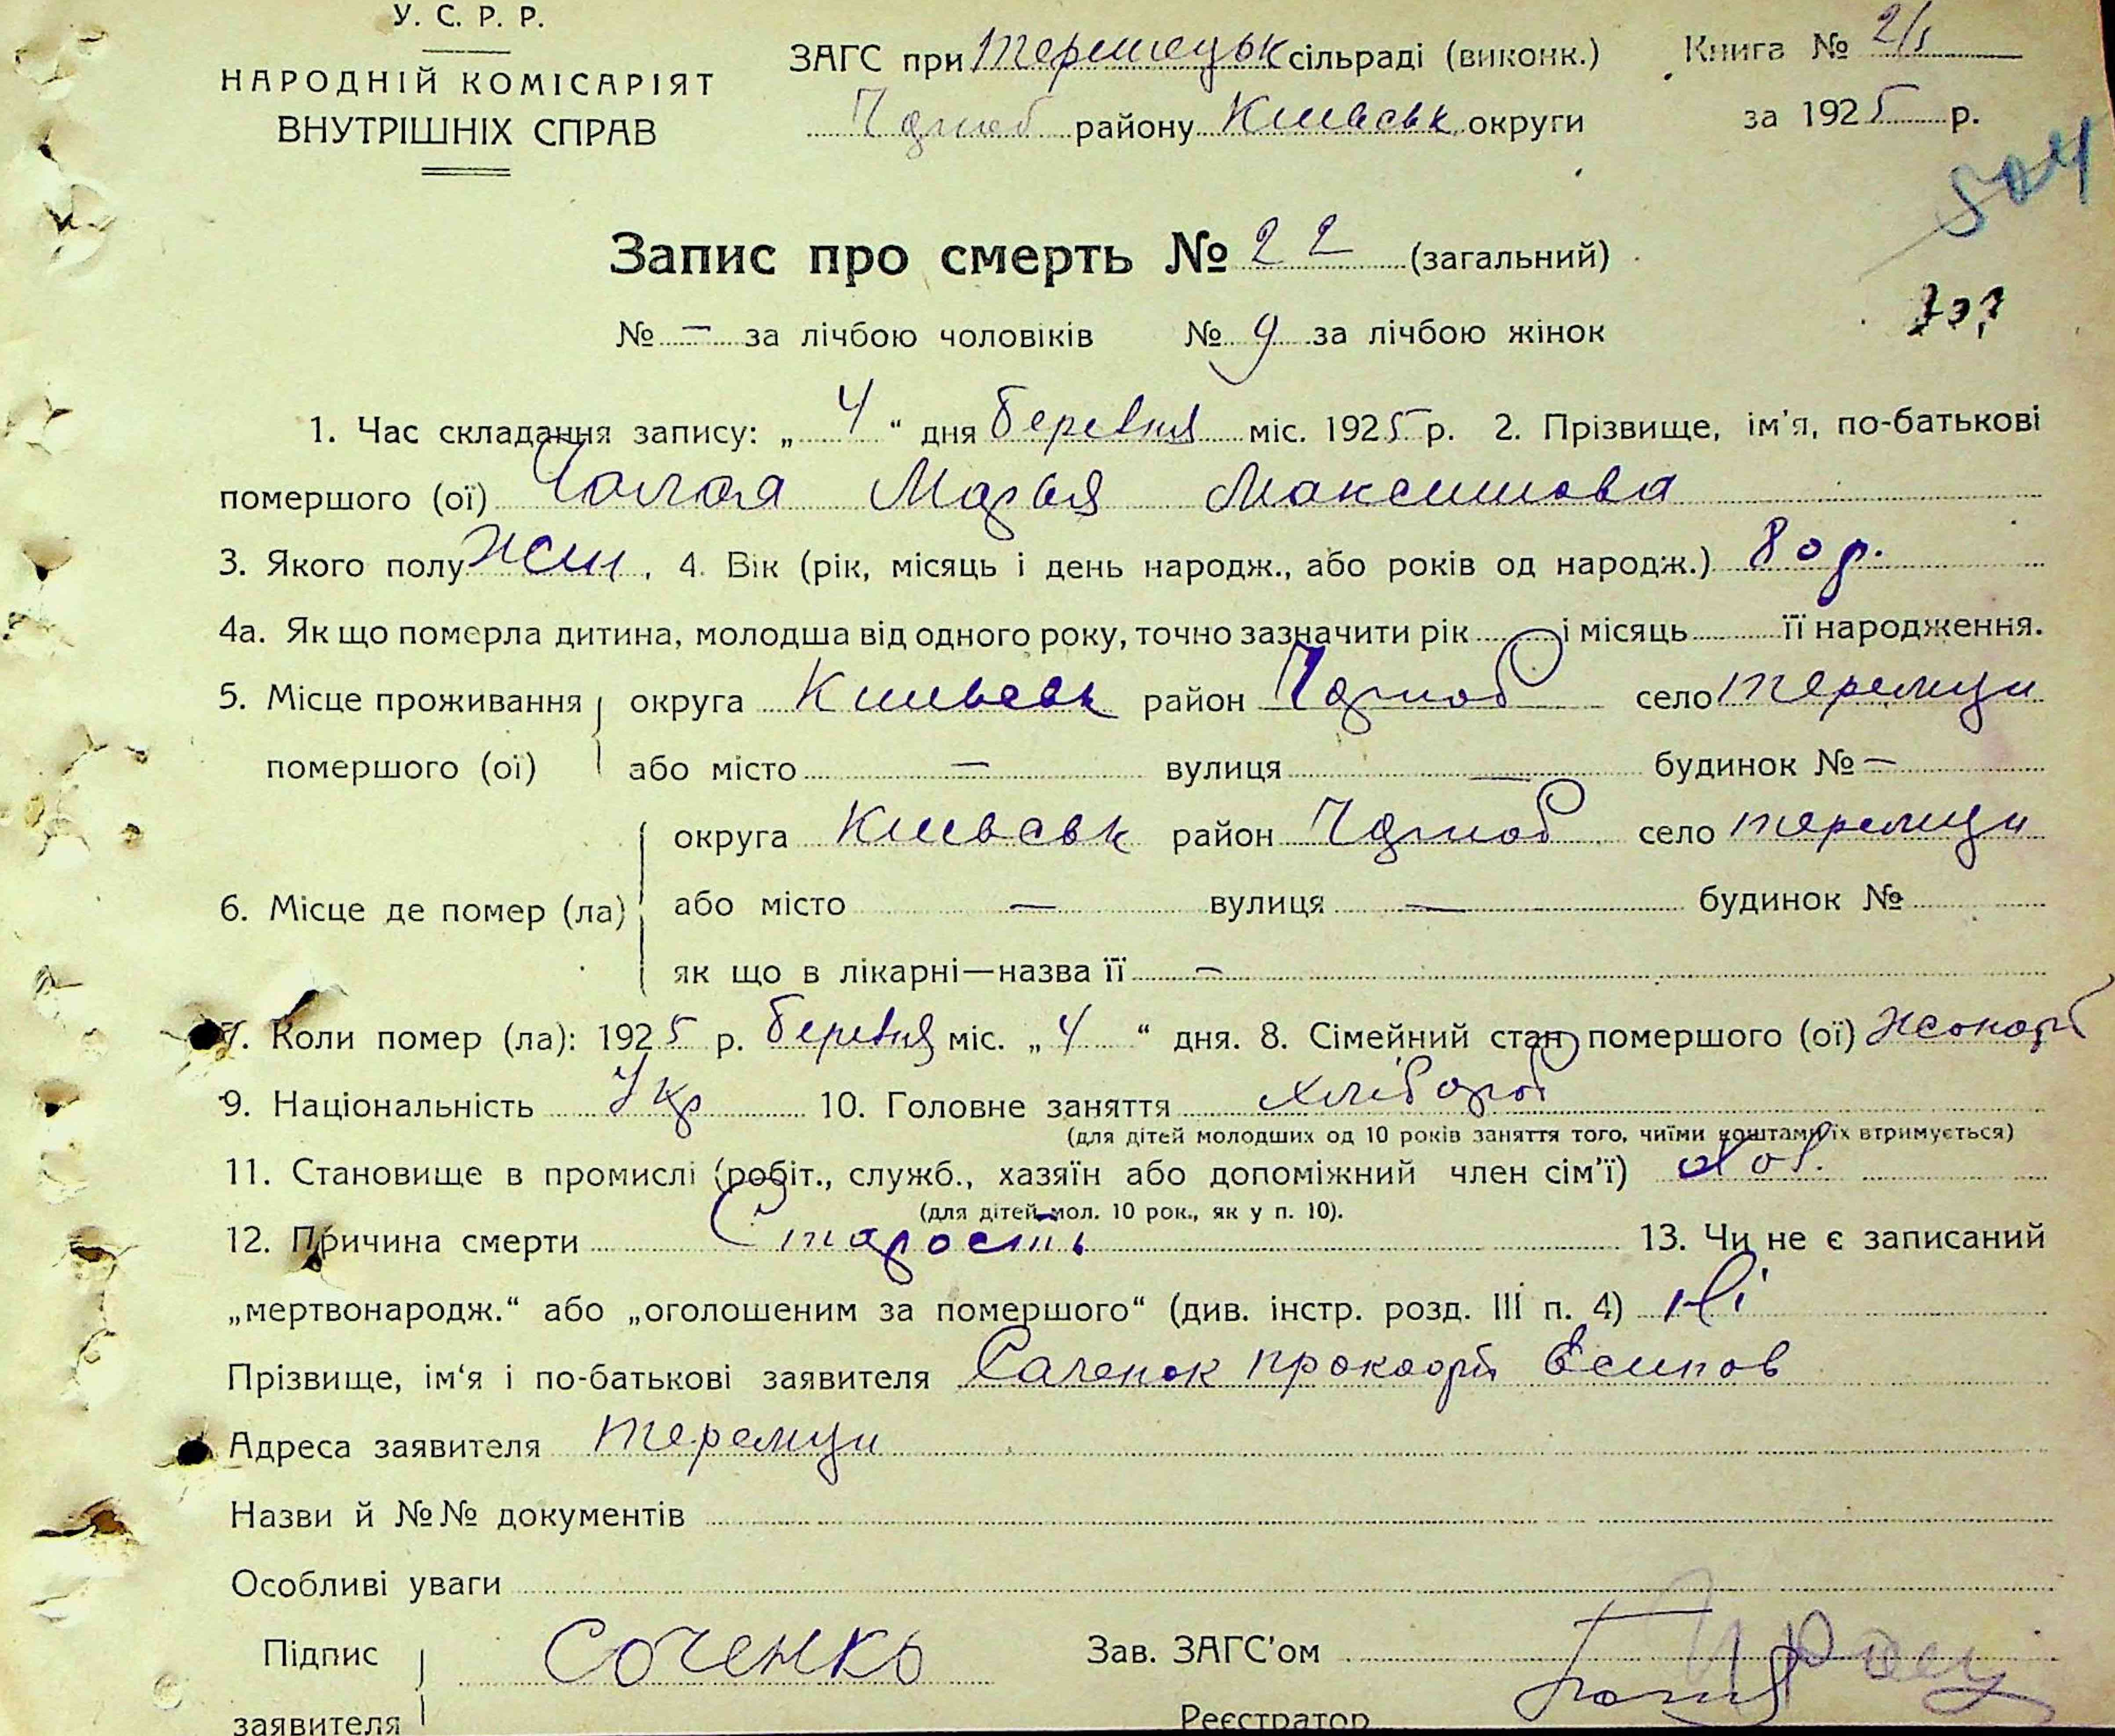 У. С. Р. Р.
НАРОДНІЙ КОМІСАРІЯТ
ВНУТРІШНІХ СПРАВ
ЗАГС при Теремецьк сільраді (виконк.) Книга № 2/1
району Київськ округи за 1925 р.
504
Запис про смерть № 22 (загальний)
№ — за лічбою чоловіків № 9 за лічбою жінок
1. Час складання запису: „ 4 “ дня березня міс. 1925 р. 2. Прізвище, ім'я, по-батькові
помершого (ої) Чалая Марья Максимова
3. Якого полу жін. 4. Вік (рік, місяць і день народж., або років од народж.) 80 р.
4а. Як що померла дитина, молодша від одного року, точно зазначити рік і місяць її народження.
5. Місце проживання округа Київськ район Чорноб село Теремци
помершого (ої) або місто — вулиця — будинок № —
округа Київськ район Чорноб село Теремци
6. Місце де помер (ла) або місто — вулиця — будинок №
як що в лікарні—назва її —
7. Коли помер (ла): 1925 р. березня міс. „ 4 “ дня. 8. Сімейний стан помершого (ої)
9. Національність Укр 10. Головне заняття хлібороб
(для дітей молодших од 10 років заняття того, чиїми коштами їх втримується)
11. Становище в промислі (робіт., служб., хазяїн або допоміжний член сім'ї)
(для дітей мол. 10 рок., як у п. 10).
12. Причина смерти Старость 13. Чи не є записаний
„мертвонародж.“ або „оголошеним за помершого“ (див. інстр. розд. III п. 4) Ні
Прізвище, ім‘я і по-батькові заявителя Саченок Прокофій Есипов
Адреса заявителя Теремци
Назви й №№ документів
Особливі уваги
Підпис Соченко Зав. ЗАГС'ом
заявителя Реєстратор